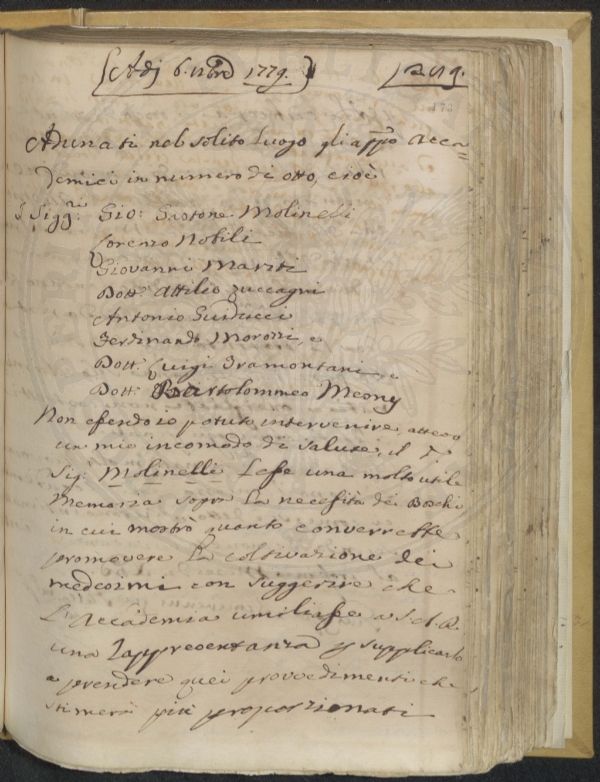 Adj 6. 9bre 1779.
Adunati nel solito luogo gli appo Acca=
demici in numero di otto, cioè
I Sigg.ri Gio: Gastone Molinelli
Lorenzo Nobili
Giovanni Mariti
Dott. Attilio Zuccagni
Antonio Guiducci
Ferdinando Morozzi, e
Dott. Luigi Tramontani, e
Dott. Bartolommeo Meony
Non essendo io potuto intervenire, atteso
un mio incomodo di salute, il
Sig. Molinelli Lesse una molto utile
Memoria sopra la necessità dei Boschi
in cui mostrò quanto converrebbe
promovere la coltivazione dei
medesimi con suggerire che
L'Accademia umiliasse a S.A.R.
una Rappresentanza p supplicarlo
a prendere quei provvedimenti che
stimerà più proporzionati